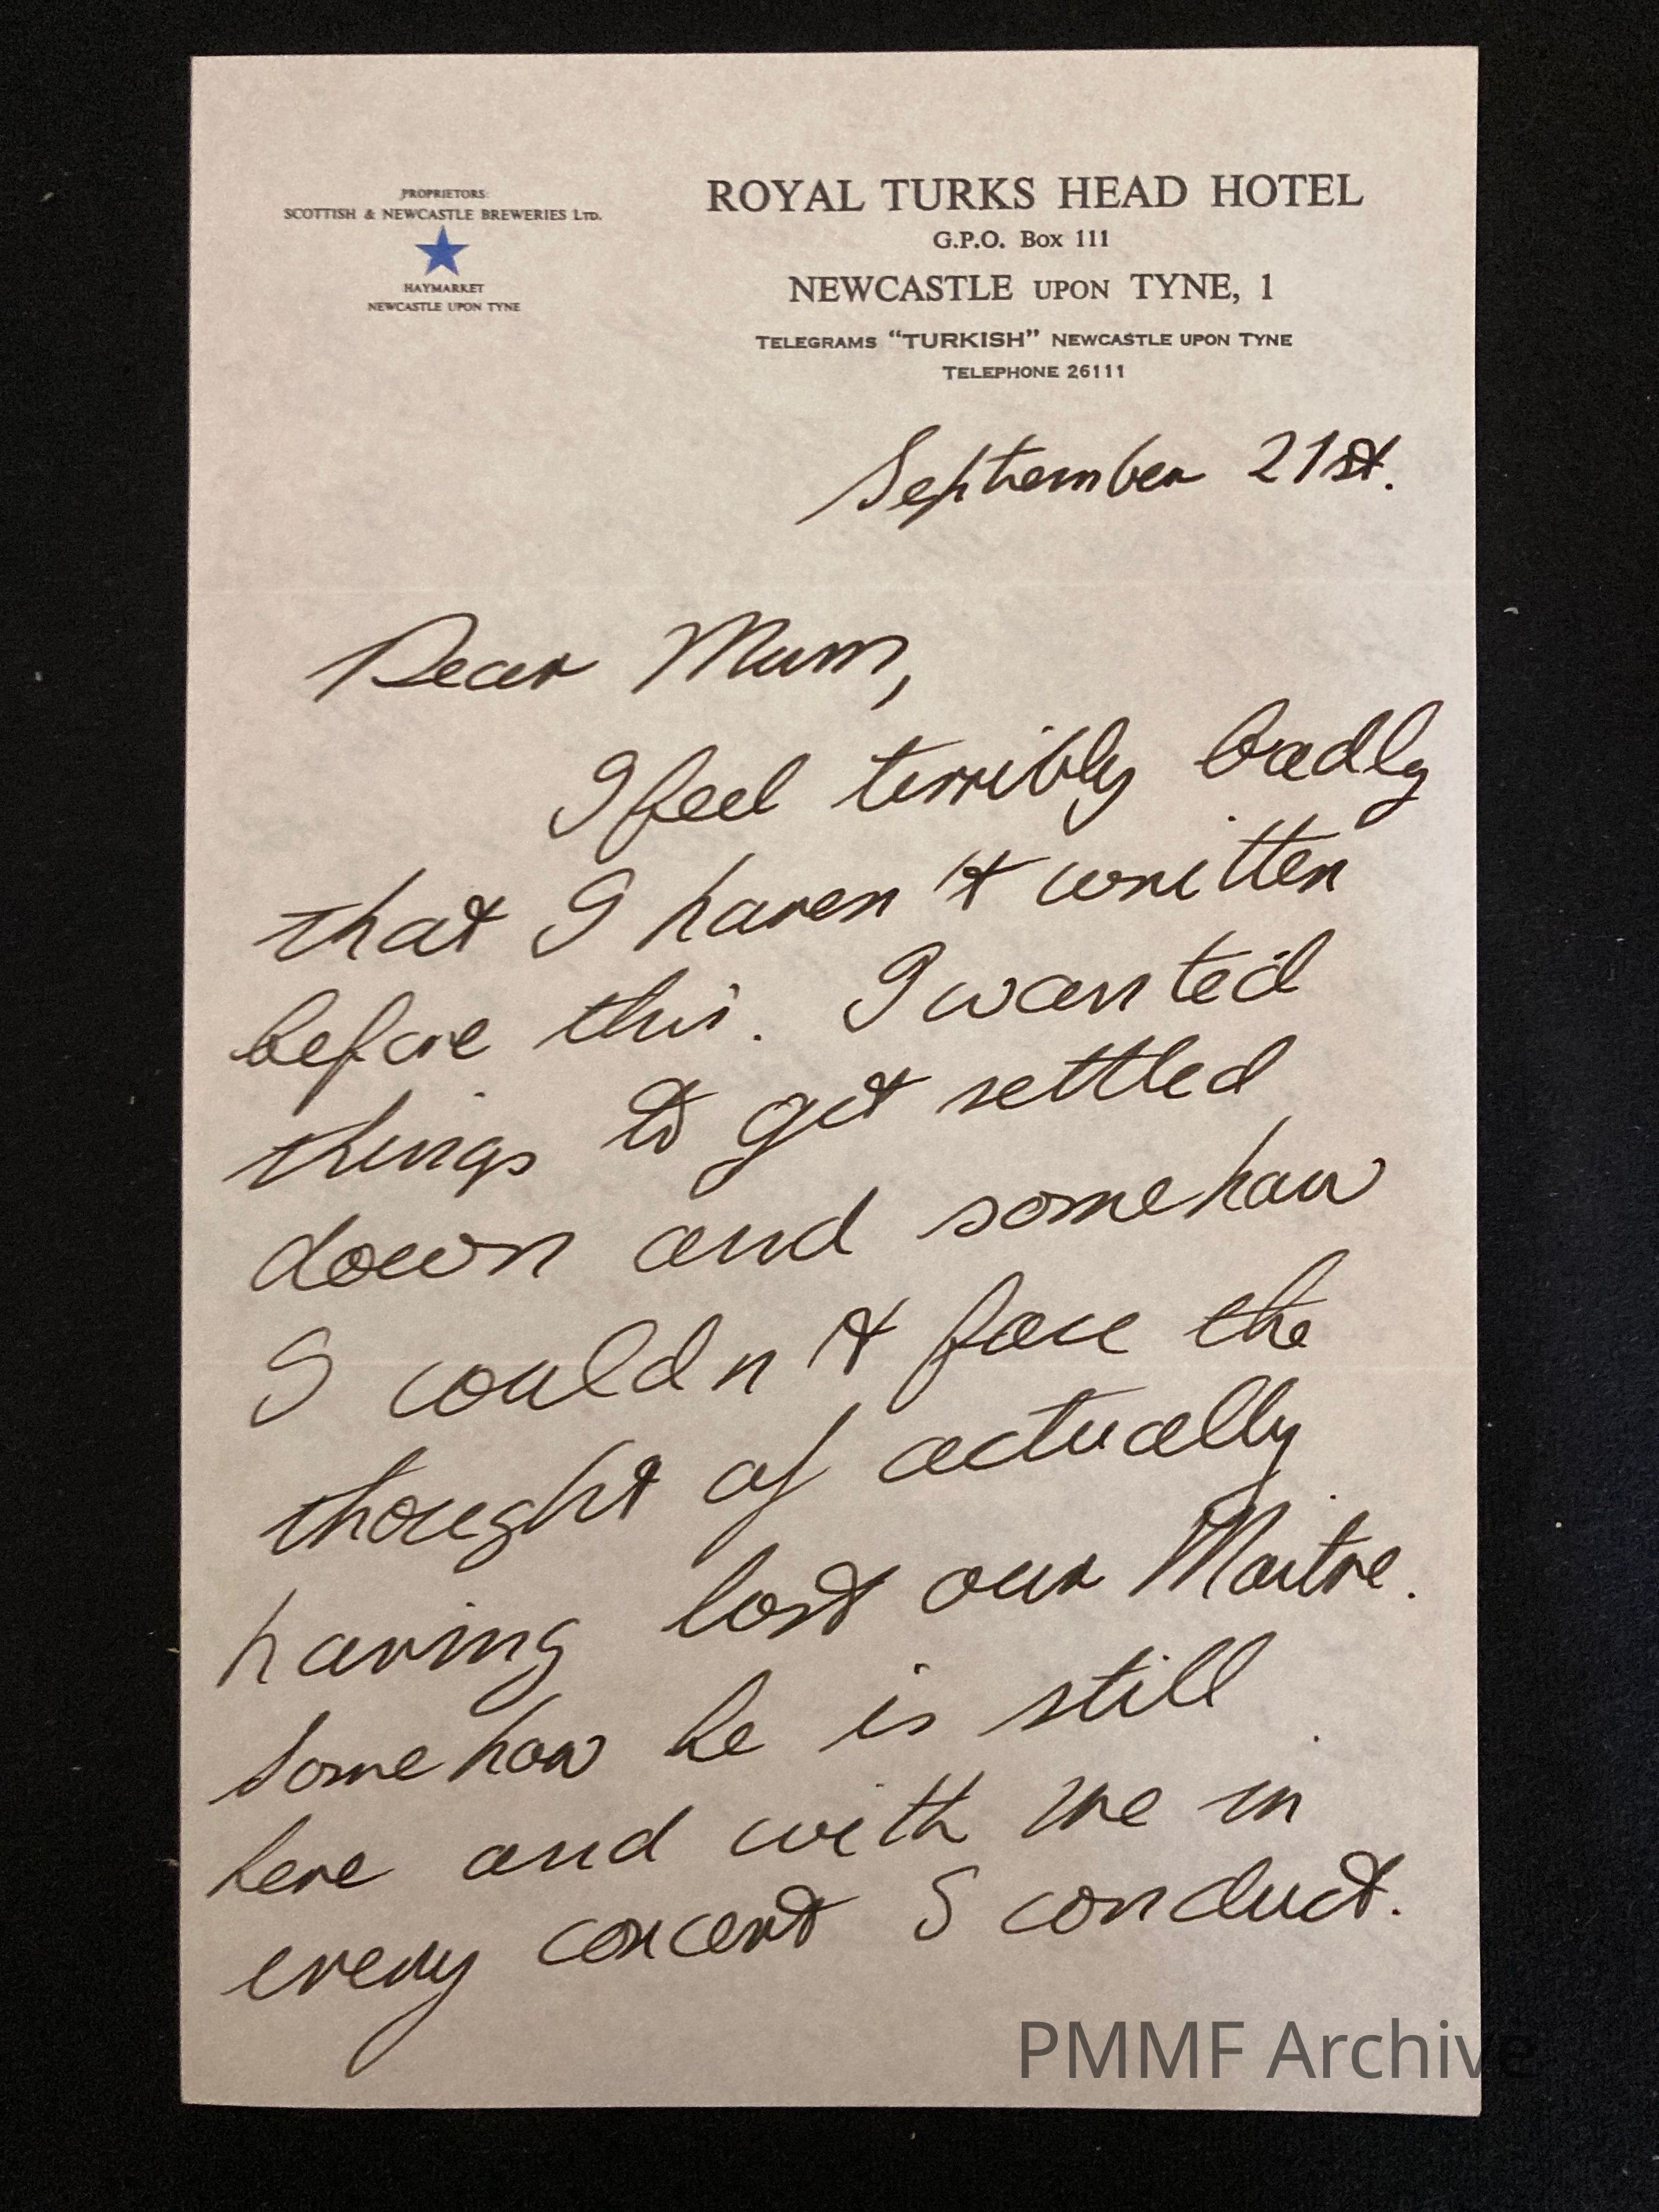 PROPRIETORS:
SCOTTISH & NEWCASTLE BREWERIES LTD.
HAYMARKET
NEWCASTLE UPON TYNE
ROYAL TURKS HEAD HOTEL
G.P.O. Box 111
NEWCASTLE UPON TYNE, 1
TELEGRAMS "TURKISH" NEWCASTLE UPON TYNE
TELEPHONE 26111
September 21st.
Dear Mum,
I feel terribly badly
that I haven't written
before this. I wanted
things to get settled
down and somehow
I couldn't face the
thought of actually
having lost our Maitre.
Somehow he is still
here and with me in
every concert I conduct.
PMMF Archive